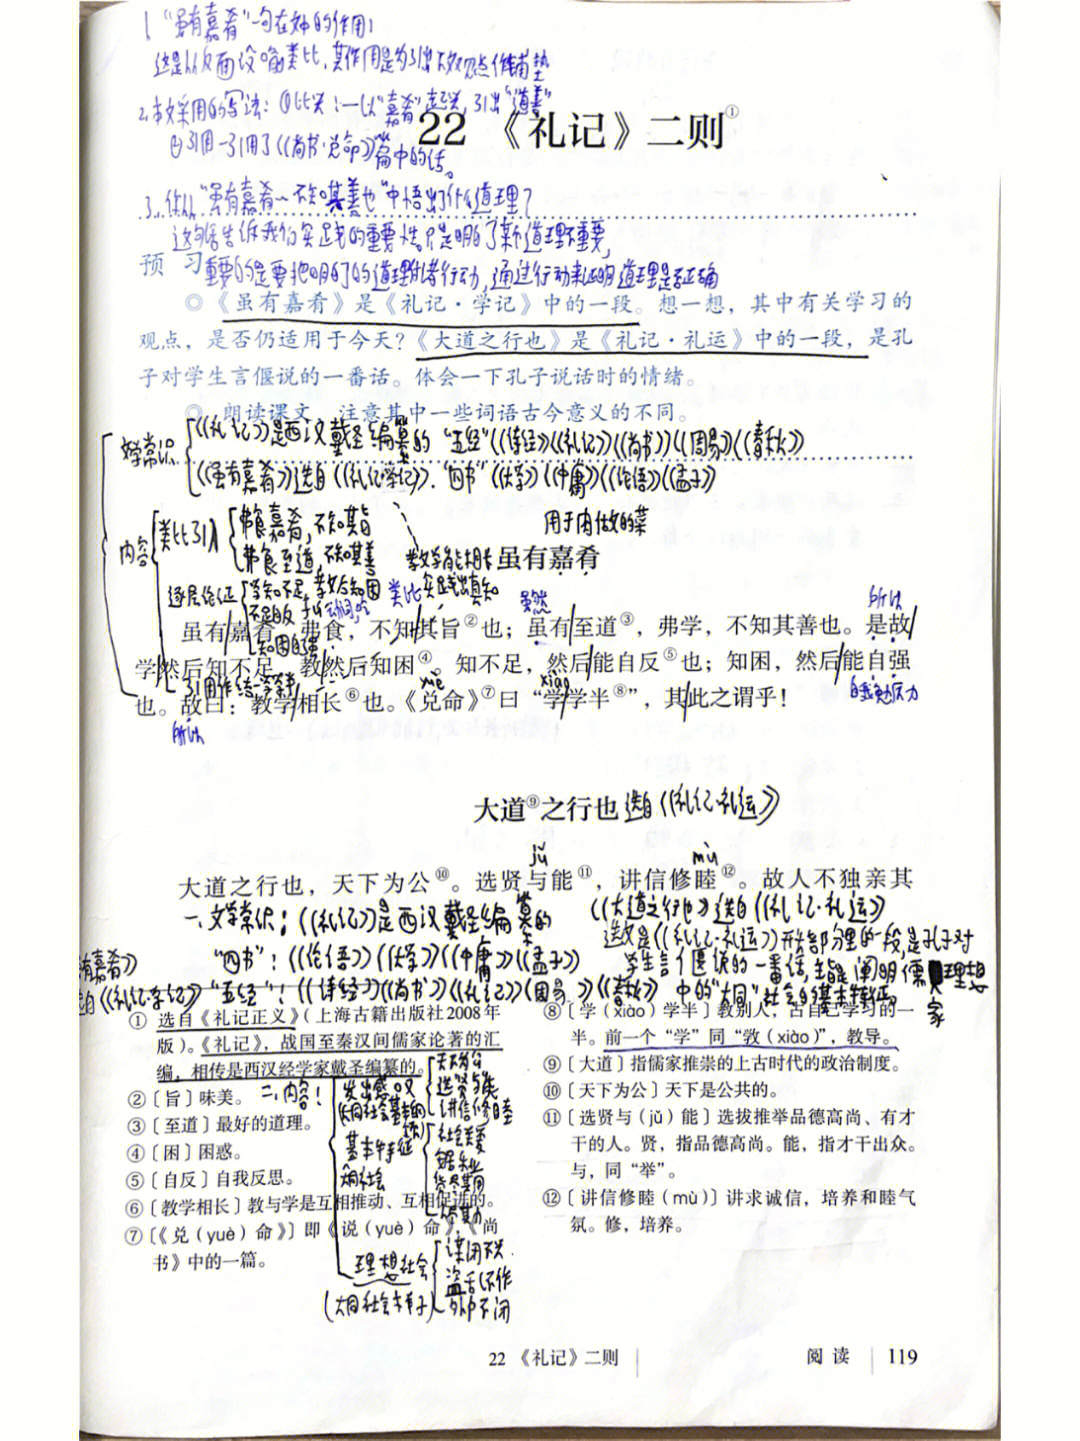 1.“虽有嘉肴”一句在文中的作用:
这是从反面设喻类比,其作用是为引出下文观点作铺垫
2.本文采用的写法:①比兴:一以“嘉肴”起兴,引出“道善”
②引用一引用了《尚书·兑命》篇中的话。
22 《礼记》二则①
3.你从“虽有嘉肴~不知其善也”中悟出了什么道理?
这句话告诉我们实践的重要性。只是明白了某个道理不重要,
重要的是要把明白了的道理付诸行动,通过行动来证明道理是否正确
预 习
◎《虽有嘉肴》是《礼记·学记》中的一段。想一想,其中有关学习的
观点,是否仍适用于今天?《大道之行也》是《礼记·礼运》中的一段,是孔
子对学生言偃说的一番话。体会一下孔子说话时的情绪。
◎ 朗读课文,注意其中一些词语古今意义的不同。
文学常识
《礼记》是西汉戴圣编纂的“五经”《诗经》《礼记》《尚书》《周易》《春秋》
《虽有嘉肴》选自《礼记·学记》.“四书”《大学》《中庸》《论语》《孟子》
内容
类比引入
弗食嘉肴,不知其旨
弗食至道,不知其善
用于肉做的菜
教学相长
虽有嘉肴
逐层论证
学知不足,教后知困
类比
实践出真知
不足自反
知困自强
虽然
所以
虽有嘉肴,弗食,不知其旨②也;虽有至道③,弗学,不知其善也。是故
学然后知不足,教然后知困④。知不足,然后能自反⑤也;知困,然后能自强
引用作结
yuè
xiào
也。故曰:教学相长⑥也。《兑命》⑦曰“学学半⑧”,其此之谓乎!
自我勉励
所以
大道⑨之行也 选自《礼记·礼运》
jǔ
mù
大道之行也,天下为公⑩。选贤与能⑪,讲信修睦⑫。故人不独亲其
一、文学常识:《礼记》是西汉戴圣编纂的
“四书”:《论语》《大学》《中庸》《孟子》
有嘉肴》
选自《礼记·学记》“五经”:《诗经》《尚书》《礼记》《周易》《春秋》
《大道之行也》选自《礼记·礼运》
这文是《礼记·礼运》开头部分里的一段,是孔子对
学生言偃说的一番话,主旨是阐明儒家理想
中的“大同”社会的基本特征。
① 选自《礼记正义》(上海古籍出版社2008年
版)。《礼记》,战国至秦汉间儒家论著的汇
编,相传是西汉经学家戴圣编纂的。
②〔旨〕味美。
③〔至道〕最好的道理。
④〔困〕困惑。
⑤〔自反〕自我反思。
⑥〔教学相长〕教与学是互相推动、互相促进的。
⑦〔《兑(yuè)命》〕即《说(yuè)命》,《尚
书》中的一篇。
二、内容:
大同社会基本纲领
天下为公
选贤与能
讲信修睦
基本特征
大同社会
社会关爱
理想社会
(大同社会)
谋闭不兴
盗窃不作
外户不闭
⑧〔学(xiào)学半〕教别人,占自己学习的一
半。前一个“学”同“敩(xiào)”,教导。
⑨〔大道〕指儒家推崇的上古时代的政治制度。
⑩〔天下为公〕天下是公共的。
⑪〔选贤与(jǔ)能〕选拔推举品德高尚、有才
干的人。贤,指品德高尚。能,指才干出众。
与,同“举”。
⑫〔讲信修睦(mù)〕讲求诚信,培养和睦气
氛。修,培养。
22 《礼记》二则
阅 读 119